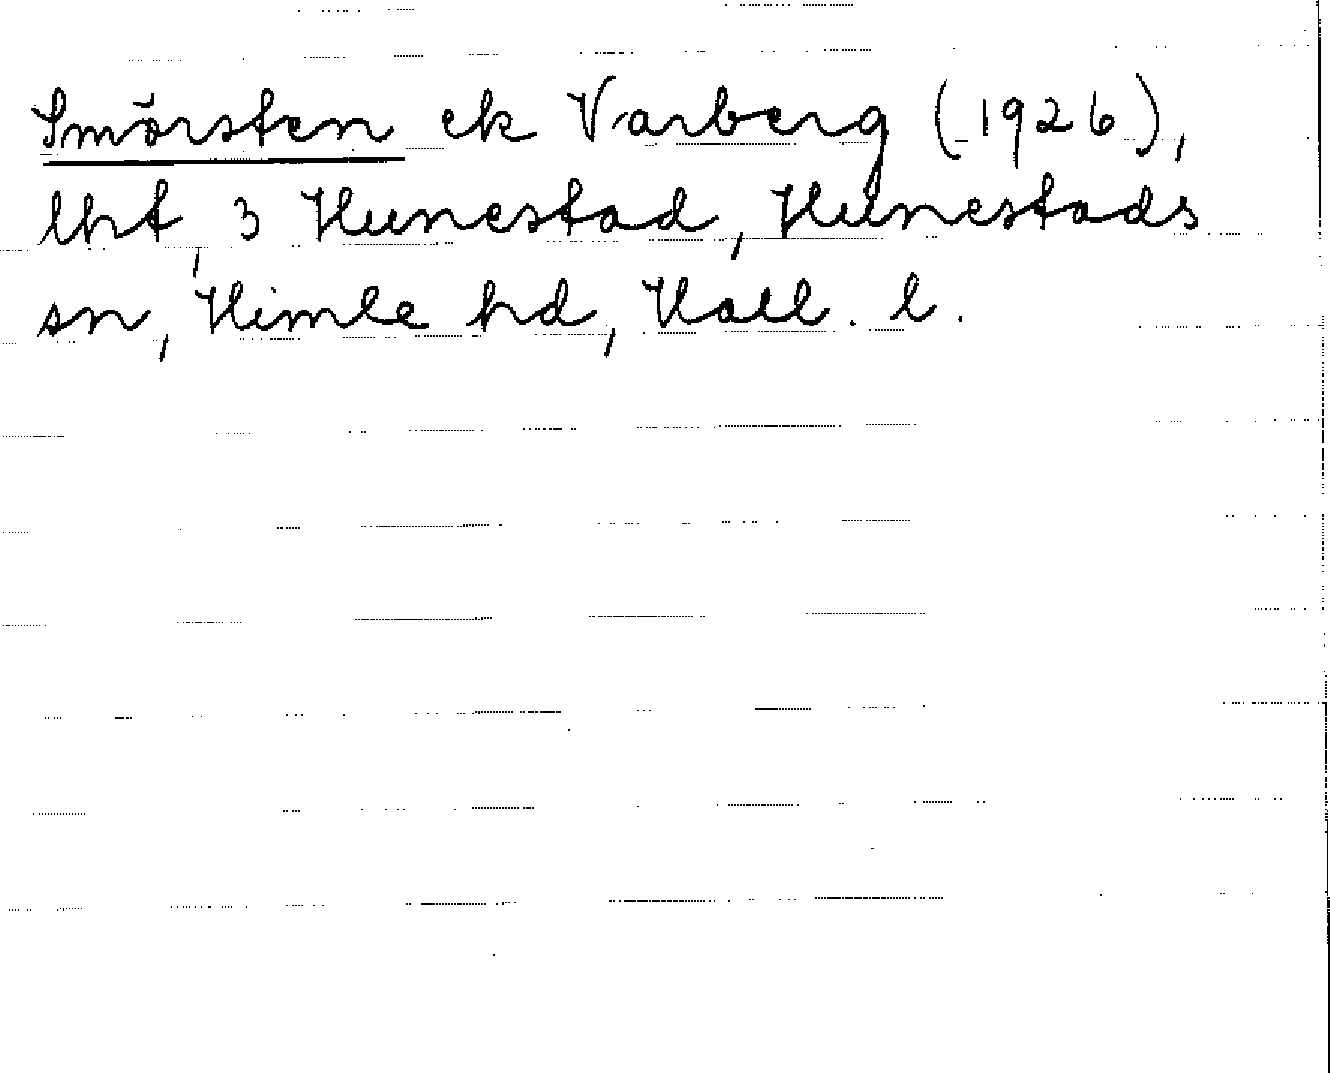 Smörsten ek Varberg (1926),
lht, 3 Hunestad, Hunestads
sn, Himle hd, Hall. l.